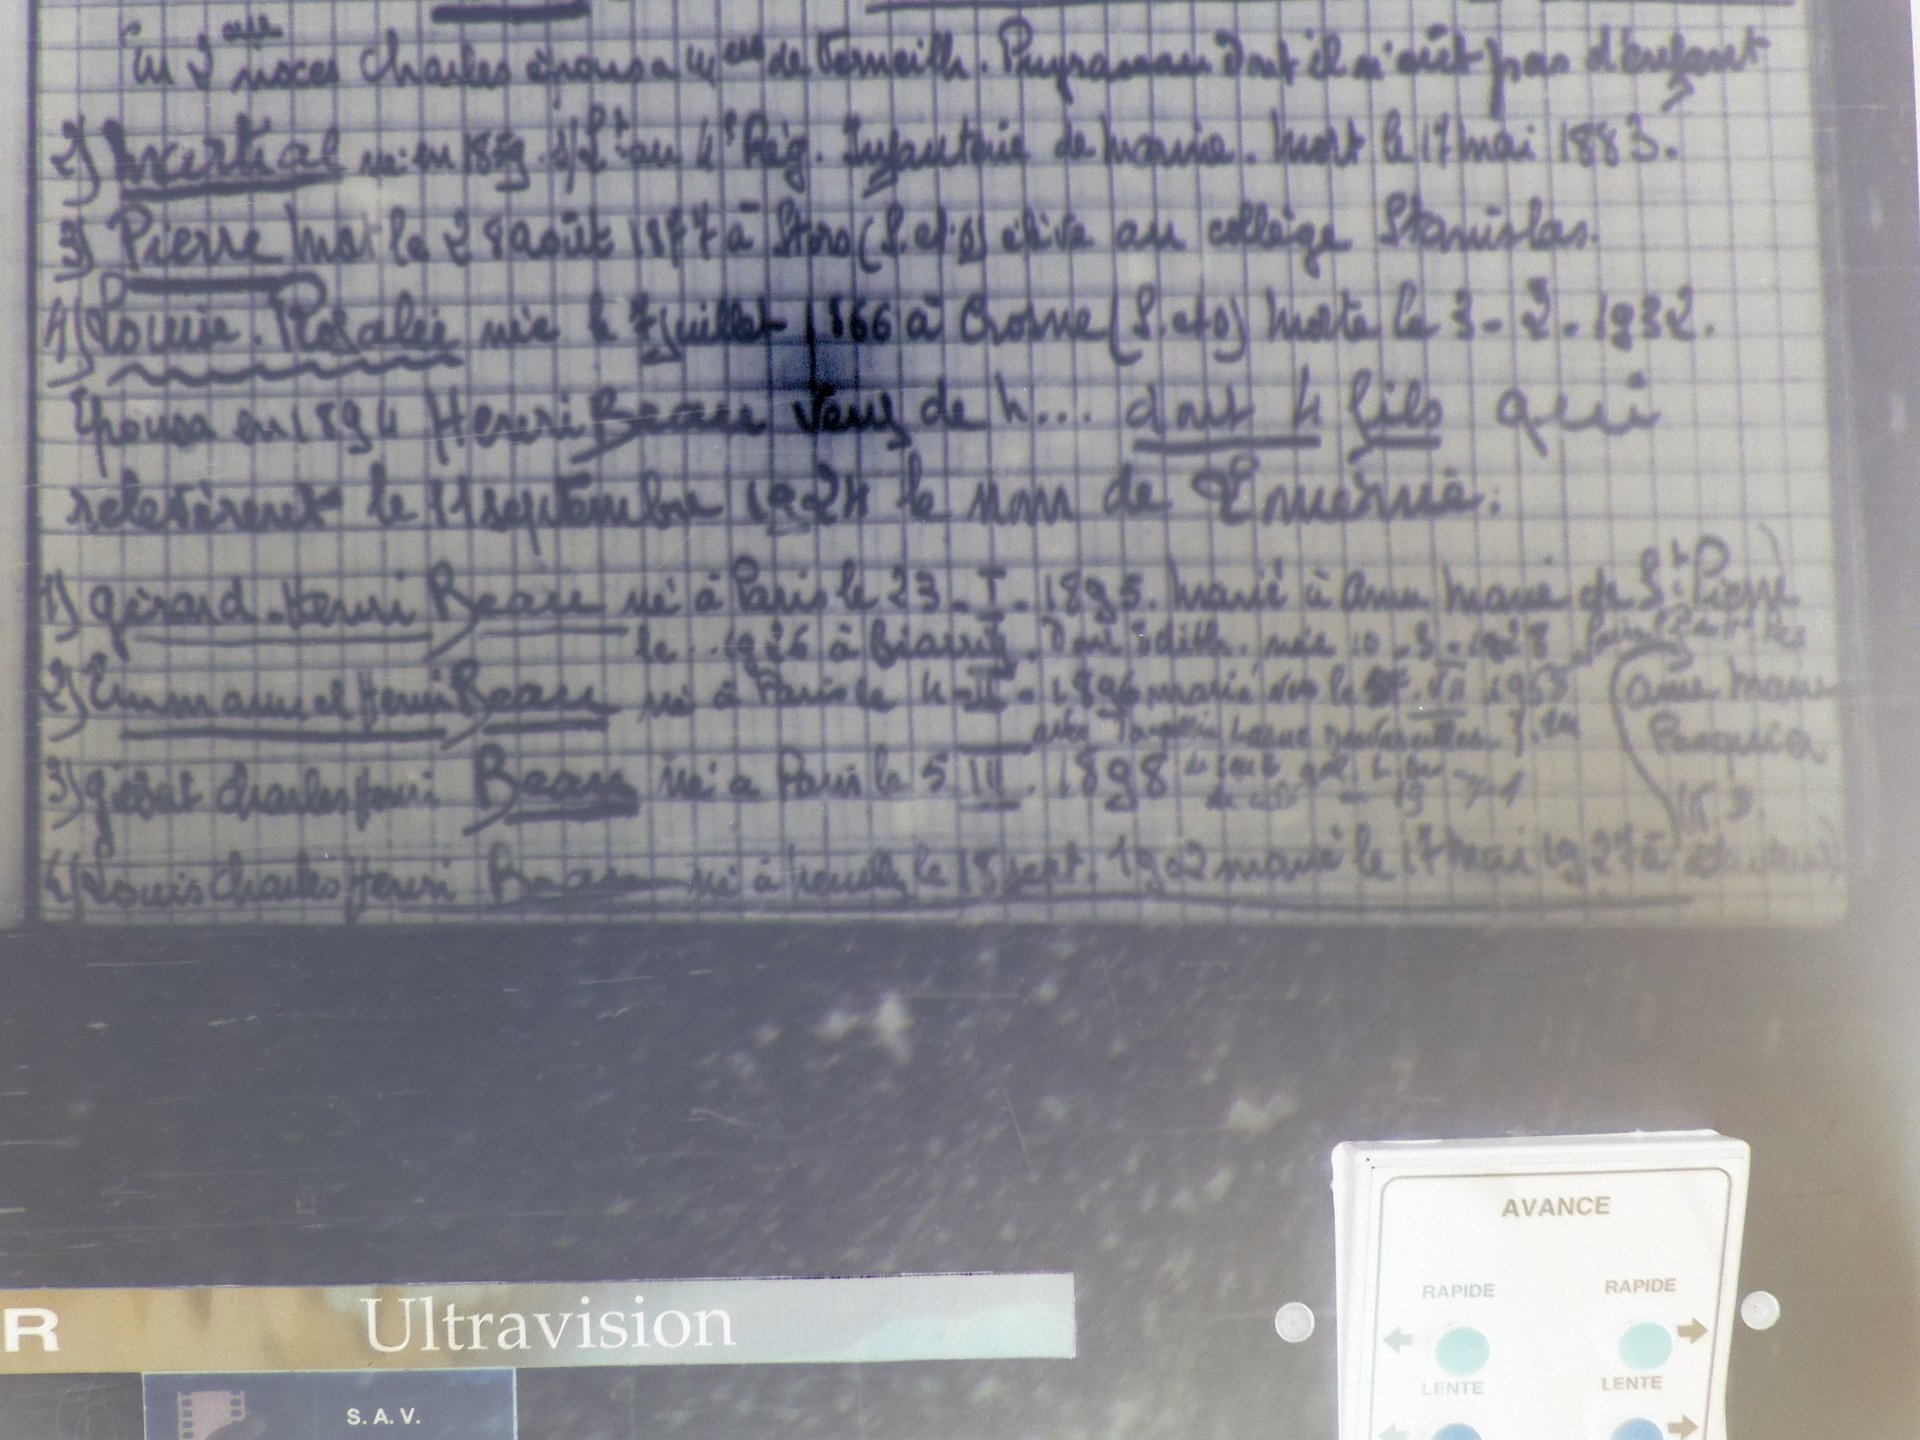 En 2ème noces Charles épousa Melle de Verneilh. Puyraseau dont il n'eût pas d'enfant
2) Martial né en 1859. s/Lt au 4e Rég. Infanterie de marine. Mort le 17 mai 1883.
3) Pierre mort le 28 août 1877 à Stors (S.et.O) élève au collège Stanislas.
4) Louise. Rosalie née le 7 juillet 1866 à Crosne (S.et.O) morte le 3-2-1932.
Epousa en 1894 Henri Beau Veuf de h... dont 4 fils qui
relevèrent le 11 septembre 1924 le nom de
1) Gérard-Henri Beau né à Paris le 23-I-1895. Marié à Anne Marie de St Pierre
le .. 1926 à Biarritz. Dont Edith. née 10-3-1928
2) Emmanuel Henri Beau né à Paris le 4-II-1896 marié le VII 1955
Anne Marie
avec
3) Charles Henri Beau né à Paris le 5 III. 1898
4) Louis Charles Henri Beau né à Neuilly le 18 sept. 1902 marié le 17 mai 1927 à
R Ultravision
S.A.V.
AVANCE
RAPIDE RAPIDE
LENTE LENTE